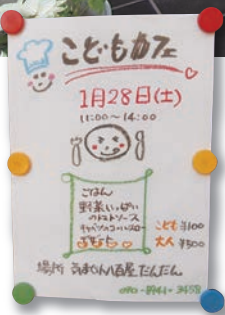 こどもカフェ
1月28日(土)
11:00～14:00
ごはん
野菜いっぱい
のミートソース
キャベツのコールスロー
こども ¥100
大人 ¥300
場所 気まぐれ八百屋だんだん
090-8941-3458